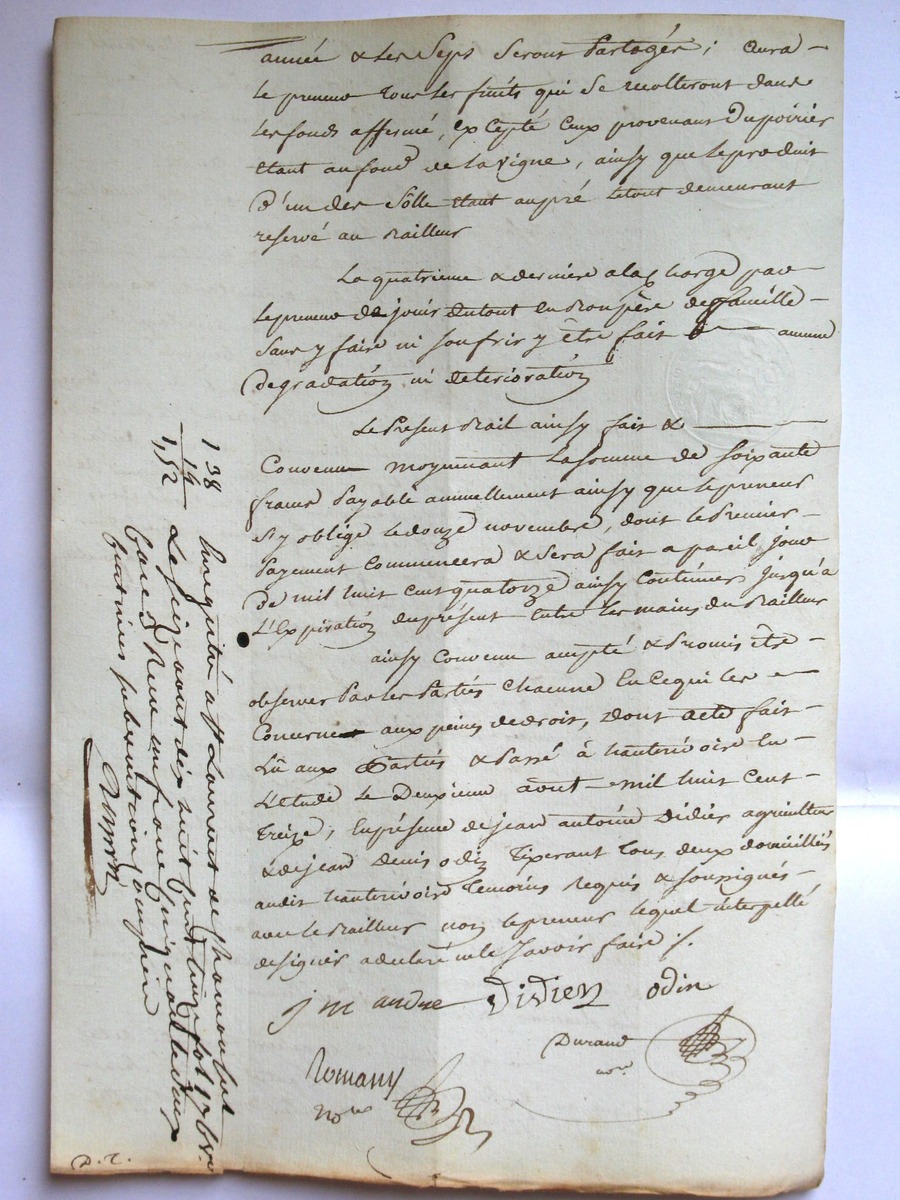 année & Les Sept Seront Partagés ; aura
Le preneur tous Les fruits qui Se recolteront dans
Les fonds affermé, Excepté Ceux provenant Dupoirier
Etant aufond de La vigne, ainsy que Leproduit
D'un des Sôlle Etant aupré Letout demeurant
reservé au Bailleur
La quatrieme & derniere alacharge par
Lepreneur de jouir dutout En Bonpère defamille
Sans y faire ni Soufrir y être fait aucune
Degradation ni deterioration
Le Present Bail ainsy fait &
Convenu moyennant LaSomme de Soixante
francs Payable annuellement ainsy que Lepreneur
S'y oblige Ledouze novembre, dont le Premier
Payement Commencera & Sera fait a pareil jour
De mil huit Cent quatorze ainsy Continuer jusqu'a
L'Expiration duprésent Entre Les mains du Bailleur
ainsy Convenu accepté & Promis être
observer Par Les Parties Chacune En Cequi Les
Concernent aux peines dedroit, Dont acte fait
Lû aux Parties & Passé à hauterivoire En
L'etude Le Deuxieme aout mil huit Cent
treize, En présence dejean antoine Didier agriculteur
& dejean Denis odin Tixerant tous deux domicilliés
audit hauterivoire Temoins Requis & Soussignés
avec Le Bailleur non Lepreneur Lequel interpellé
designer adeclaré nele Savoir faire /.
j m andre Didier odin
Durand
nore
Romany
Nore
D. T.
1 38
14
1,52
Enregistré a St Laurent de chamousset
Le Seize aout dix huit Cent treize fol 176
Recu un franc Cinquante deux
centimes subvention comprise